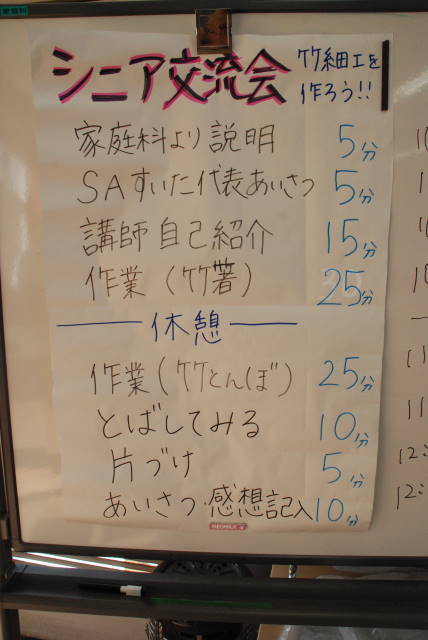 家庭科
シニア交流会 竹細工を
作ろう!!
家庭科より説明 5分
SAすいた代表あいさつ 5分
講師自己紹介 15分
作業(竹箸) 25分
休憩
作業(竹とんぼ) 25分
とばしてみる 10分
片づけ 5分
あいさつ・感想記入 10分
10
1
10
11
11
12:
12: